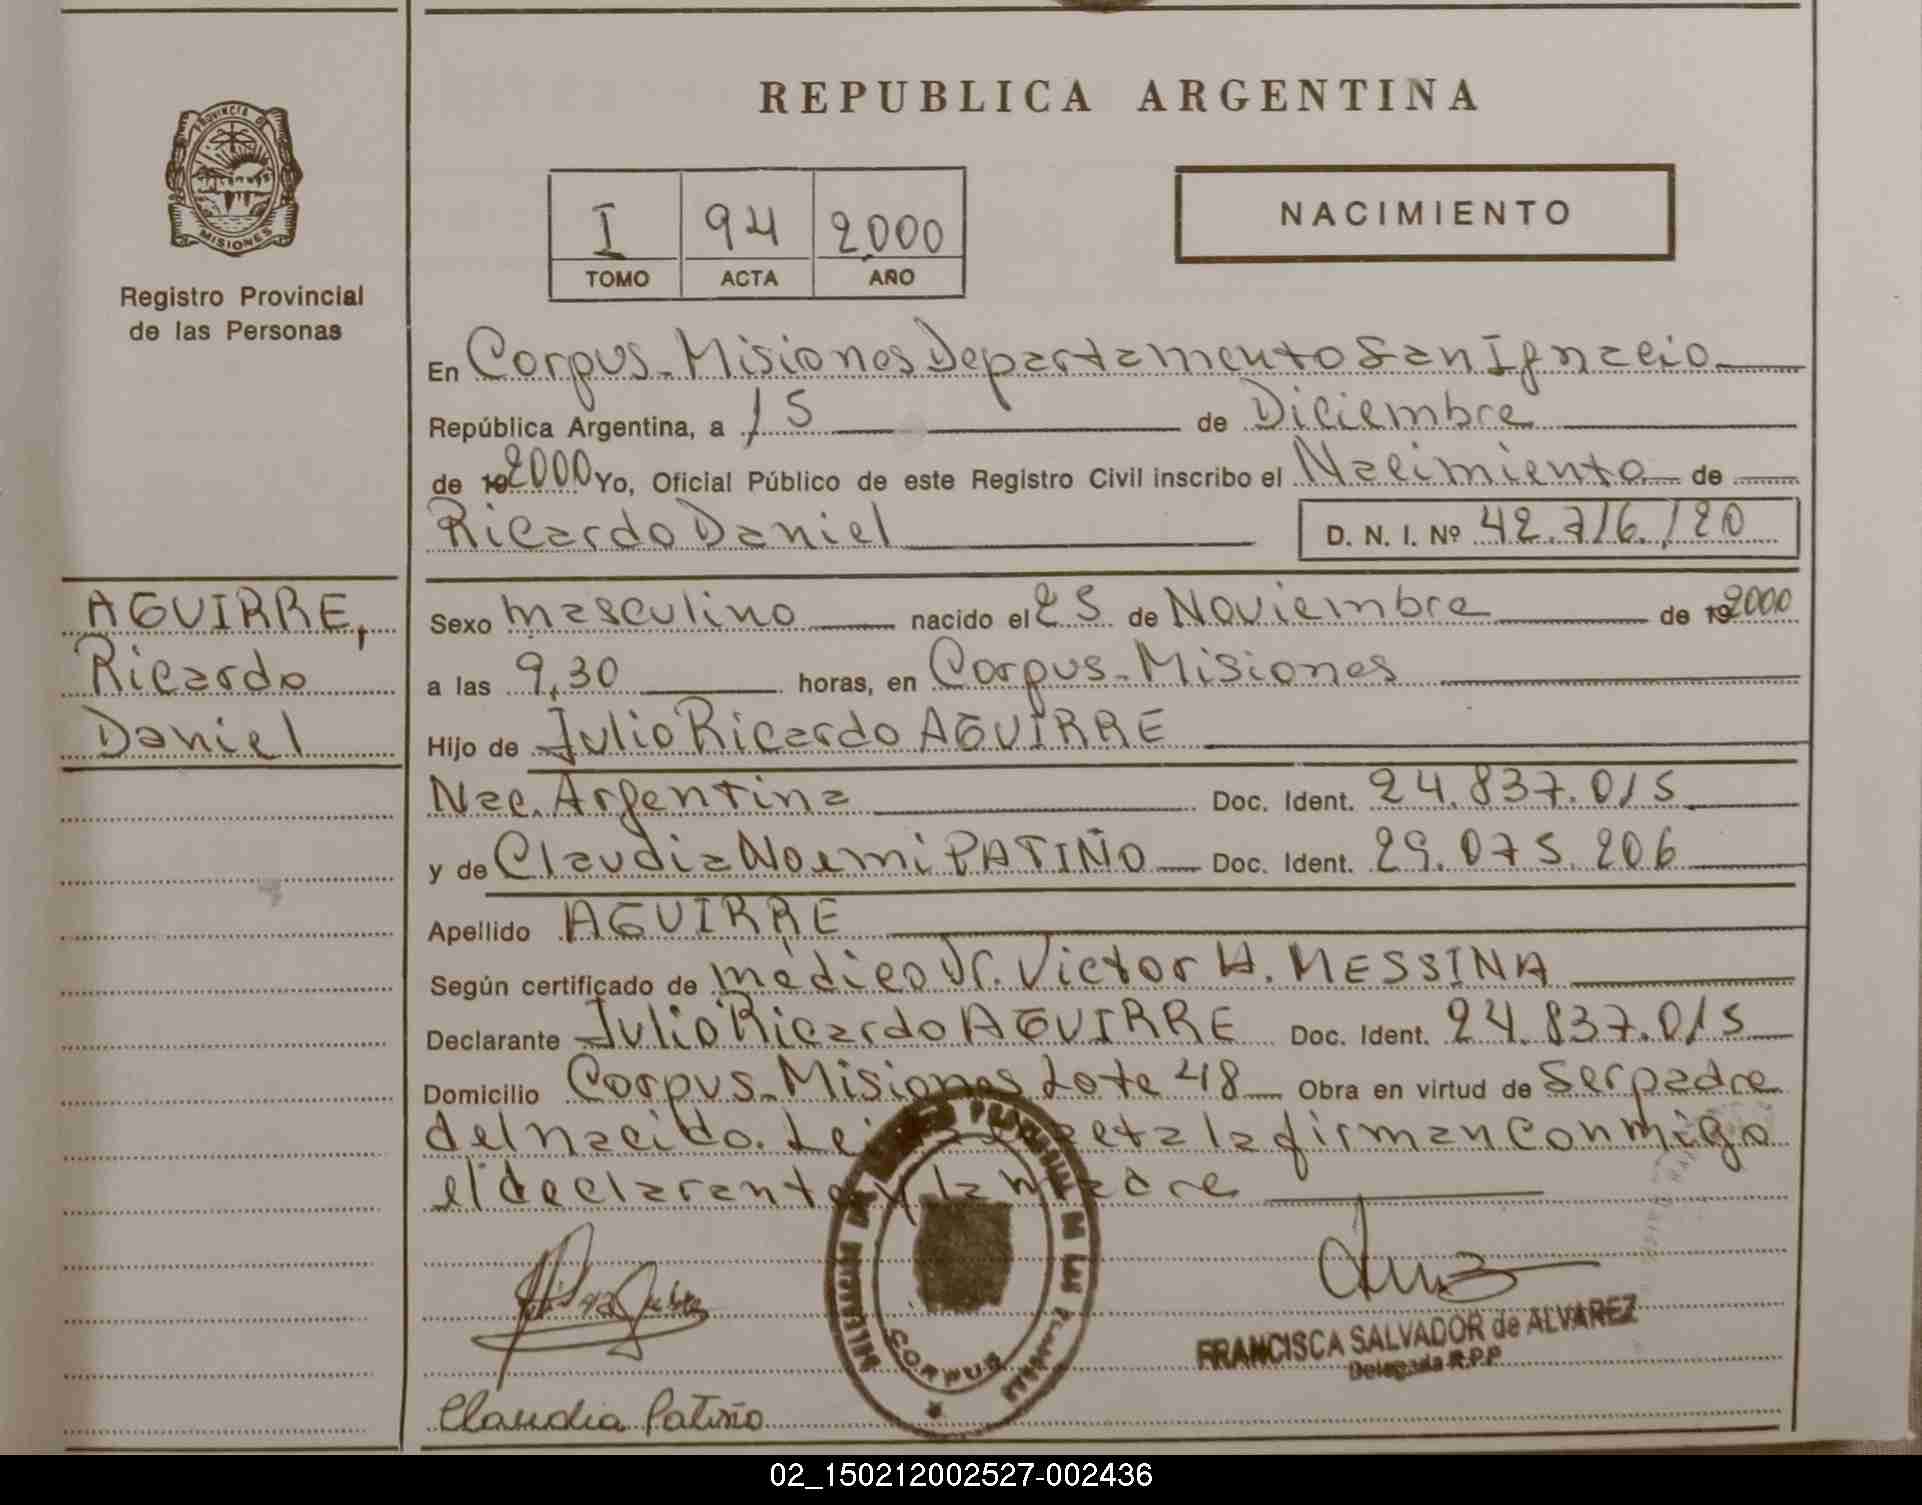 REPUBLICA ARGENTINA
PROVINCIA DE
MISIONES
Registro Provincial
de las Personas
I 94 2000
TOMO ACTA AÑO
NACIMIENTO
En Corpus-Misiones Departamento San Ignacio
República Argentina, a 15 de Diciembre
de 19 2000 Yo, Oficial Público de este Registro Civil inscribo el Nacimiento de
Ricardo Daniel D. N. I. Nº 42.716.120
AGUIRRE,
Ricardo
Daniel
Sexo masculino nacido el 25 de Noviembre de 19 2000
a las 9,30 horas, en Corpus-Misiones
Hijo de Julio Ricardo AGUIRRE
Nac. Argentina Doc. Ident. 24.837.015
y de Claudia Noemi PATIÑO Doc. Ident. 29.075.206
Apellido AGUIRRE
Según certificado de médico Dr. Victor H. MESSINA
Declarante Julio Ricardo AGUIRRE Doc. Ident. 24.837.015
Domicilio Corpus-Misiones Lote 48 Obra en virtud de Ser padre
del nacido. Leida el acta la firman conmigo
el declarante y la madre
CORPUS
FRANCISCA SALVADOR de ALVAREZ
Delegada R.P.P
Claudia Patiño
02_150212002527-002436